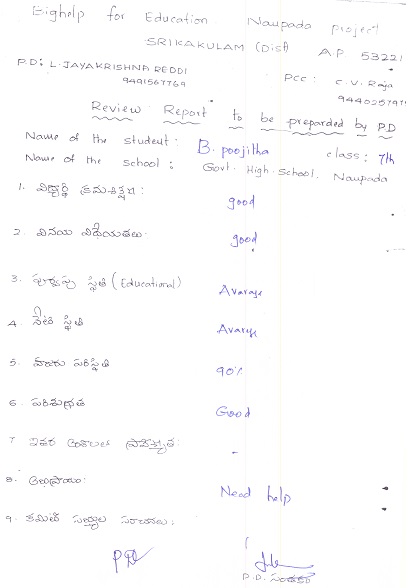 Eighelp for Education Naupada project
SRIKAKULAM (Dist) A.P. 53221
P.D: L. JAYAKRISHNA REDDI
9491567769
PCC: C.V. Raja
944025797
Review Report to be preparded by PD
Name of the student: B. poojitha class: 7th
Name of the school: Govt. High-school. Naupada
1. విద్యార్థి క్రమశిక్షణ: good
2. వినయ విధేయతలు good
3. పూర్వపు స్థితి (Educational) Avarage
4. నేటి స్థితి Avarage
5. హాజరు పరిస్థితి 90%
6. పరిశుభ్రత Good
7. ఇతర అంశాలలో ప్రావీణ్యత: -
8. అభిప్రాయం: Need help
9. కమిటీ సభ్యుల సూచనలు:
PD
P.D. సంతకం